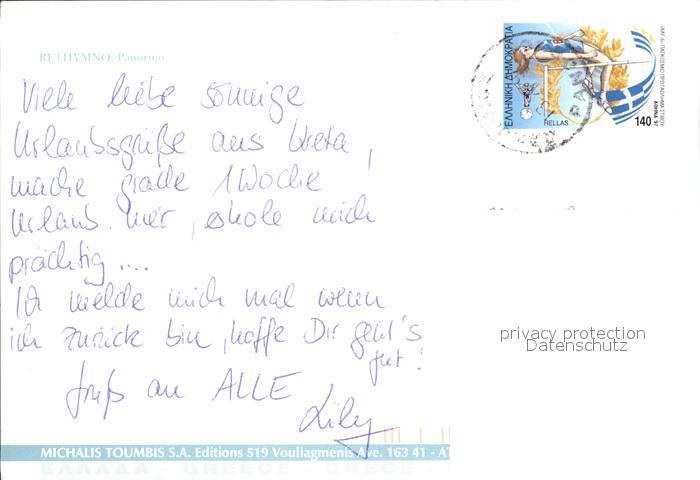 RETHYMNO: Panormo
Viele liebe sonnige
Urlaubsgrüße aus Kreta,
mache grade 1 Woche
Urlaub hier, erhole mich
prächtig ....
Ich melde mich mal wenn
ich zurück bin, hoffe Dir geht's
gut!
Gruß an ALLE
Lily
ΕΛΛΗΝΙΚΗ ΔΗΜΟΚΡΑΤΙΑ
HELLAS
140
ΑΘΗΝΑ 97
privacy protection
Datenschutz
MICHALIS TOUMBIS S.A. Editions 519 Vouliagmenis Ave. 163 41 - AT
ΕΛΛΑΔΑ - GREECE - GRECE -